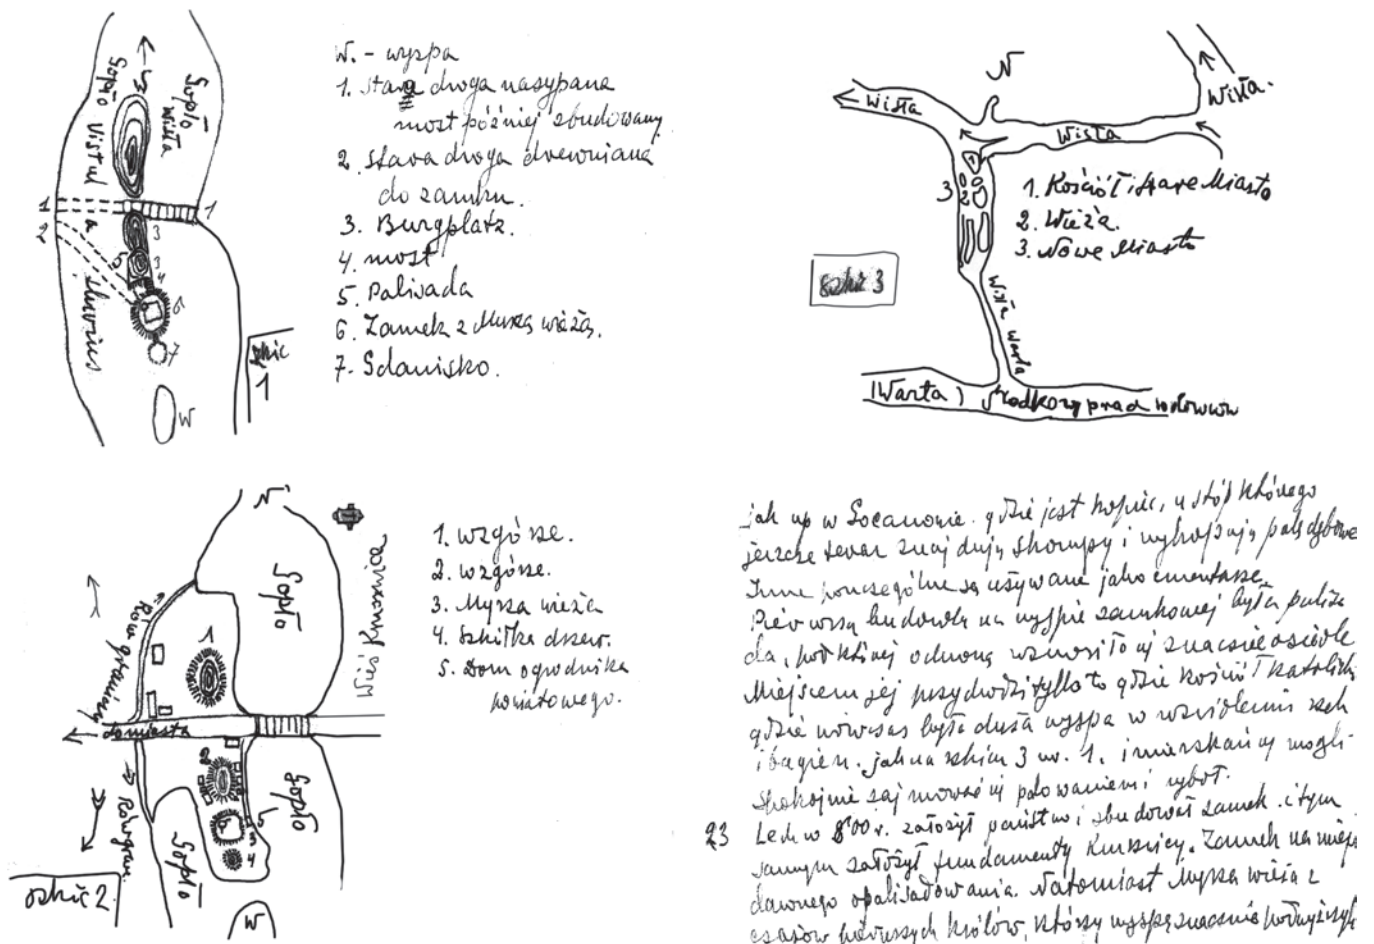 W. - wyspa
1. stara droga nasypana
most później zbudowany
2. stara droga drewniana
do zamku.
3. Burgplatz.
4. most
5. Palisada
6. Zamek z Myszą wieżą.
7. Gdanisko.
Gopło
Gopło
Wisła
Vistula
1
2
1
3
3
4
5
6
7
W
szkic
1
N
Wisła
Wisła
Wisła.
1
2
3
1. Kościół i stare Miasto
2. Wieża.
3. Nowe Miasto
szkic 3
Wisła Warta
(Warta) środkowy prad
N
Gopło
Wieś Kruszwica
Rów graniczny
1
do miasta
2
Rów gran.
Gopło
Gopło
3
4
5
W
szkic 2.
1. wzgórze.
2. wzgórze.
3. Mysza wieża
4. szkółka drzew.
5. Dom ogrodnika
powiatowego.
jak np w gdzie jest kopiec, u stóp którego
jeszcze teraz znajdują skorupy i wykopują pale dębowe
Inne poszczególne są używane jako cmentarze.
Pierwszą budowlą na wyspie zamkowej była palisa
da, pod której ochroną wznosiło się znacznie osiedle
Miejscem jej przychodzi tylko to gdzie kościół katolicki
gdzie wówczas była duża wyspa w rzek
i bagien. jak na szkicu 3 nr. 1. i mieszkańcy mogli
spokojnie zajmować się polowaniem i ryboł.
23 Lech w 800 r. założył państwo i zbudował zamek. i tym
samym założył fundamenty Kruszwicy. Zamek na miejs
dawnego opalisadowania. Natomiast Mysza wieża z
czasów pierwszych królów, którzy wyspę znacznie podwyższyli